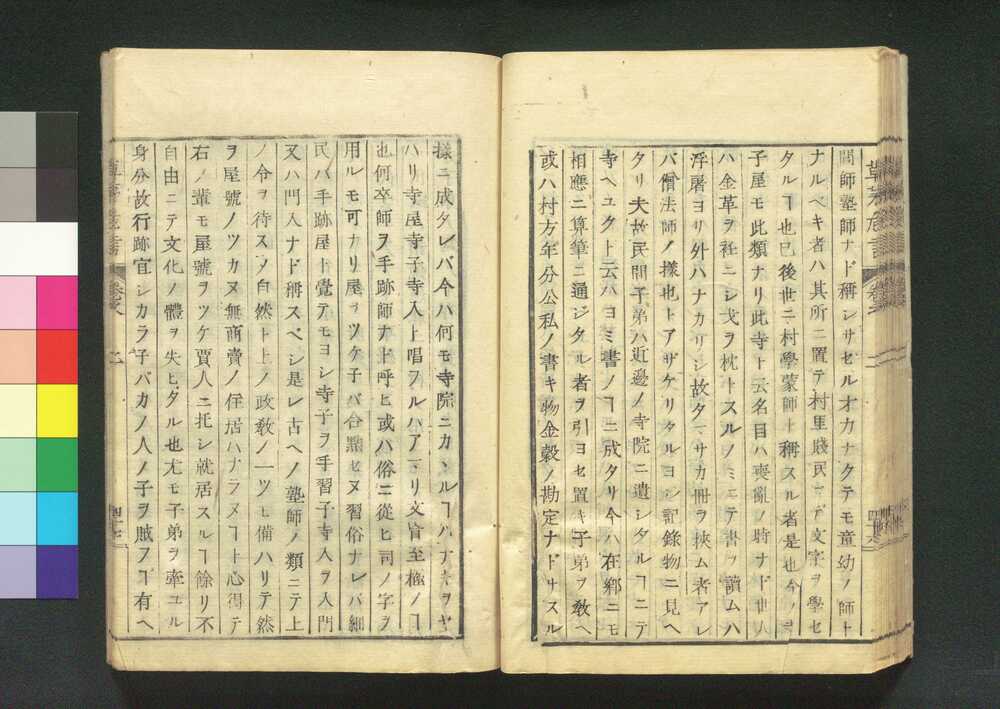 閭師塾師ナド稱シサセル才カナクテモ童幼ノ師ト
ナルベキ者ハ其所ニ置テ村里賤民マデ文字ヲ學セ
タルヿ也已後世ニ村學蒙師ト稱スル者是也今ノ寺
子屋モ此類ナリ此寺ト云名目ハ喪亂ノ時ナド世人
ハ金革ヲ衽ニシ戈ヲ枕トスルノミニテ書ヲ讀ムハ
浮屠ヨリ外ハナカリシ故タマサカ冊ヲ挾ム者アレ
バ僧法師ノ樣也トアザケリタルヨシ記錄物ニ見ヘ
タリ夫故民間子弟ハ近邊ノ寺院ニ遣シタルヿニテ
寺ヘユクト云ハヨミ書ノヿニ成タリ今ハ在鄕ニモ
相應ニ算筆ニ通ジタル者ヲ引ヨセ置キ子弟ヲ敎ヘ
或ハ村方年分公私ノ書キ物金穀ノ勘定ナドサスル
樣ニ成タレバ今ハ何モ寺院ニカヽルヿハナキヲヤ
ハリ寺屋寺子寺入上唱フルハアマリ文盲至極ノヿ
也何卒師ヲ手跡師ナド呼ヒ或ハ俗ニ從ヒ司ノ字ヲ
用ルモ可ナリ屋ヲツケ子バ合點セヌ習俗ナレバ細
民バ手跡屋ト覺テモヨシ寺子ヲ手習子寺入ヲ入門
又ハ門入ナド稱スベシ是レ古ヘノ塾師ノ類ニテ上
ノ令ヲ待スメ自然ト上ノ政敎ノ一ツヒ備ハリテ然
ヲ屋號ノツカヌ無商賣ノ住居ハナラヌヿト心得テ
右ノ輩モ屋號ヲツケ賈人ニ托シ就居スルヿ餘リ不
自由ニテ文化ノ體ヲ失ヒタル也尤モ子弟ヲ牽ユル
身分故行跡宜シカラ子バカノ人ノ子ヲ賊フヿ有ヘ